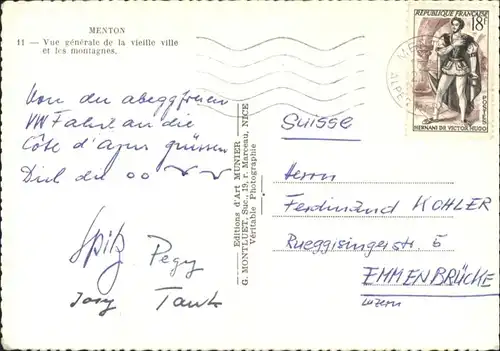 MENTON
11 — Vue générale de la vieille ville
et les montagnes.
Von der
VW Fahrt an die
Côte d'Azur grüssen
Dich die
Spitz Pegy
Josy
Editions d'Art MUNIER
G. MONTLUET, Suc., 19, r. Marceau, NICE
Véritable Photographie
RÉPUBLIQUE FRANÇAISE
18F
POSTES
HERNANI DE VICTOR HUGO
Suisse
Herrn
Ferdinand KOHLER
Rueggisingerstr. 5
EMMENBRÜCKE
Luzern